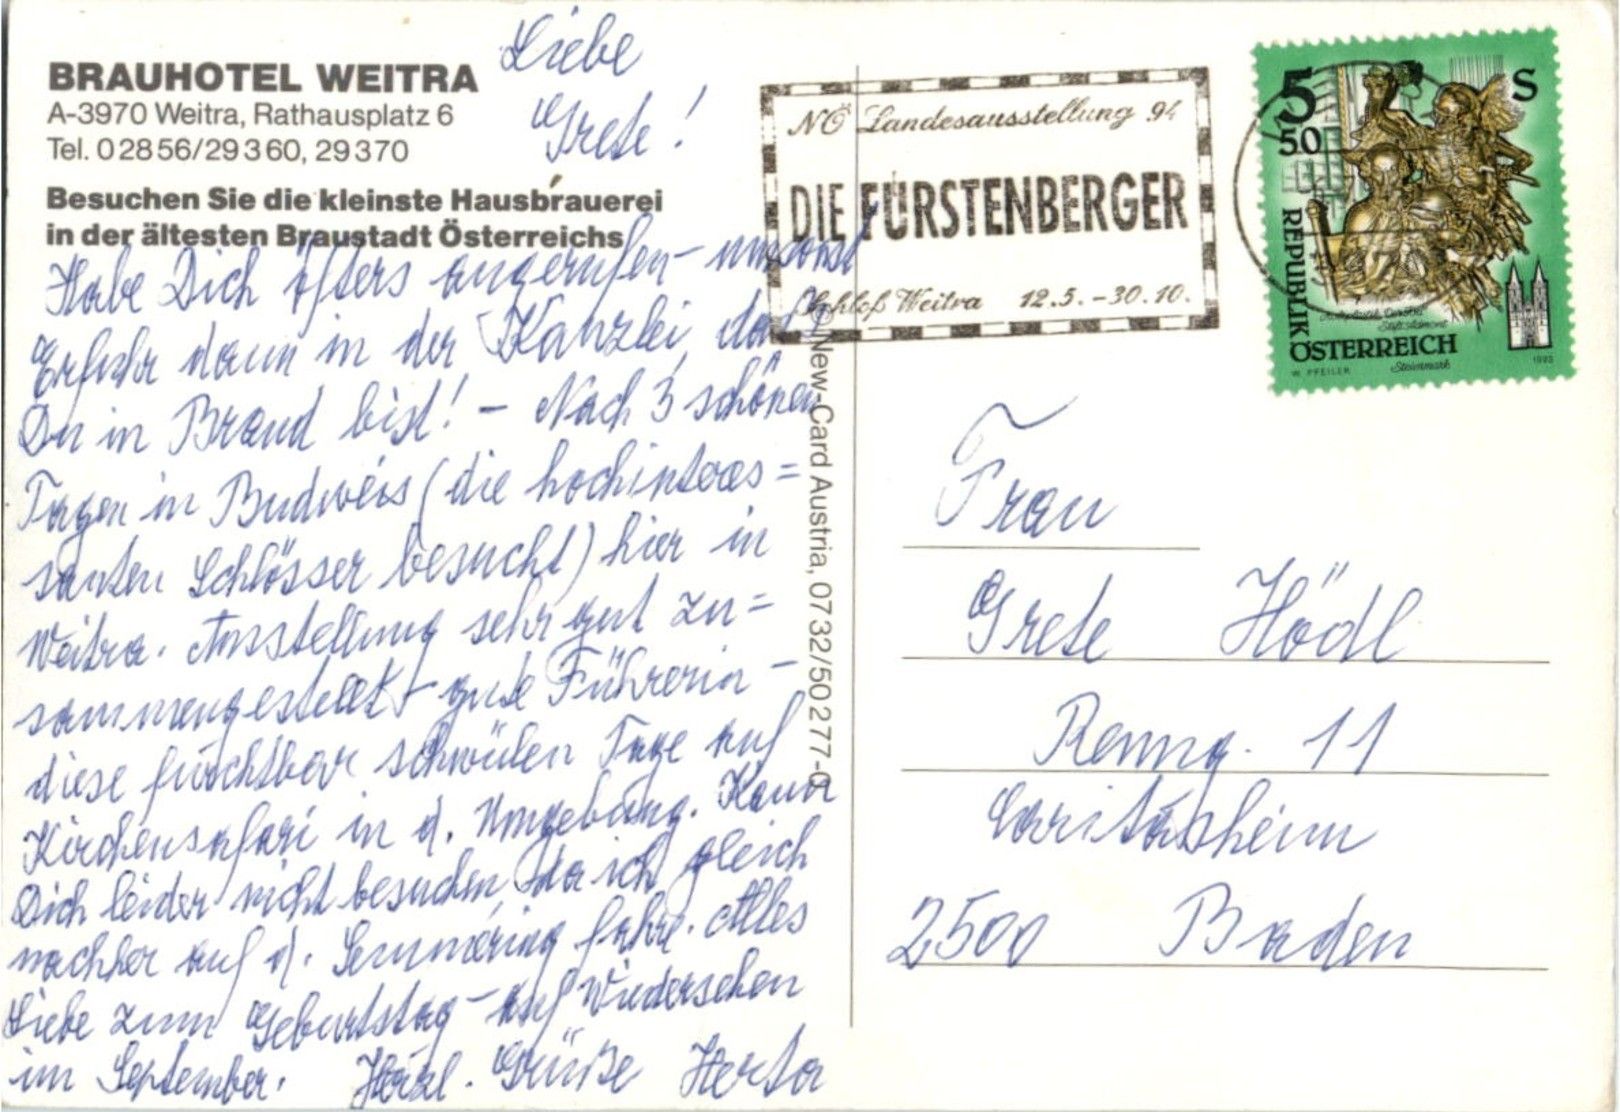 BRAUHOTEL WEITRA
A-3970 Weitra, Rathausplatz 6
Tel. 0 28 56/29 3 60, 29 3 70
Besuchen Sie die kleinste Hausbrauerei
in der ältesten Braustadt Österreichs
Liebe
Grete!
Habe Dich öfters angerufen – umsonst
Erfuhr dann in der Kanzlei, daß
Du in Brand bist! – Nach 3 schönen
Tagen in Budweis (die hochinteres=
santen Schlösser besucht) hier in
Weitra. Ausstellung sehr gut zu=
sammengestellt – gute Führerin –
diese furchtbar schwülen Tage auf
Kirchensafari in d. Umgebung. Kann
Dich leider nicht besuchen, da ich gleich
nachher auf d. Semmering fahre. Alles
Liebe zum Geburtstag – auf Wiedersehen
im September. Herzl. Grüße Herta
New-Card Austria, 0732/50 2 77-0
NÖ Landesausstellung 94
DIE FÜRSTENBERGER
Schloß Weitra 12.5.–30.10.
5 S
50
REPUBLIK
ÖSTERREICH
W. PFEILER
Steiermark
1993
Frau
Grete Hödl
Renng. 11
Caritasheim
2500 Baden